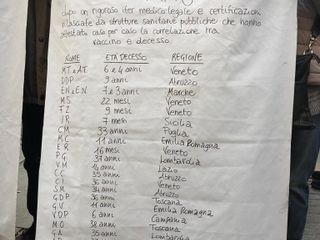 dopo un rigoroso iter medico legale e certificazioni
rilasciate da strutture sanitarie pubbliche che hanno
attestato caso per caso la correlazione tra
vaccino e decesso.
NOME ETÀ DECESSO REGIONE
MT e AT 6 e 4 anni Veneto
DDP 9 anni Abruzzo
EN e EN 7 e 3 anni Marche
MS 22 mesi Veneto
FZ 9 mesi Veneto
IR 7 mesi Sicilia
CM 33 anni Puglia
MC 11 anni Emilia Romagna
ER 16 mesi Veneto
PG 31 anni Lombardia
VM anni Lazio
CC 35 anni Abruzzo
CI anni Veneto
SM 34 anni Abruzzo
GDP 36 anni Toscana
GV 11 anni Emilia Romagna
VDP 6 anni Campania
MO 38 anni Toscana
anni Lombardia